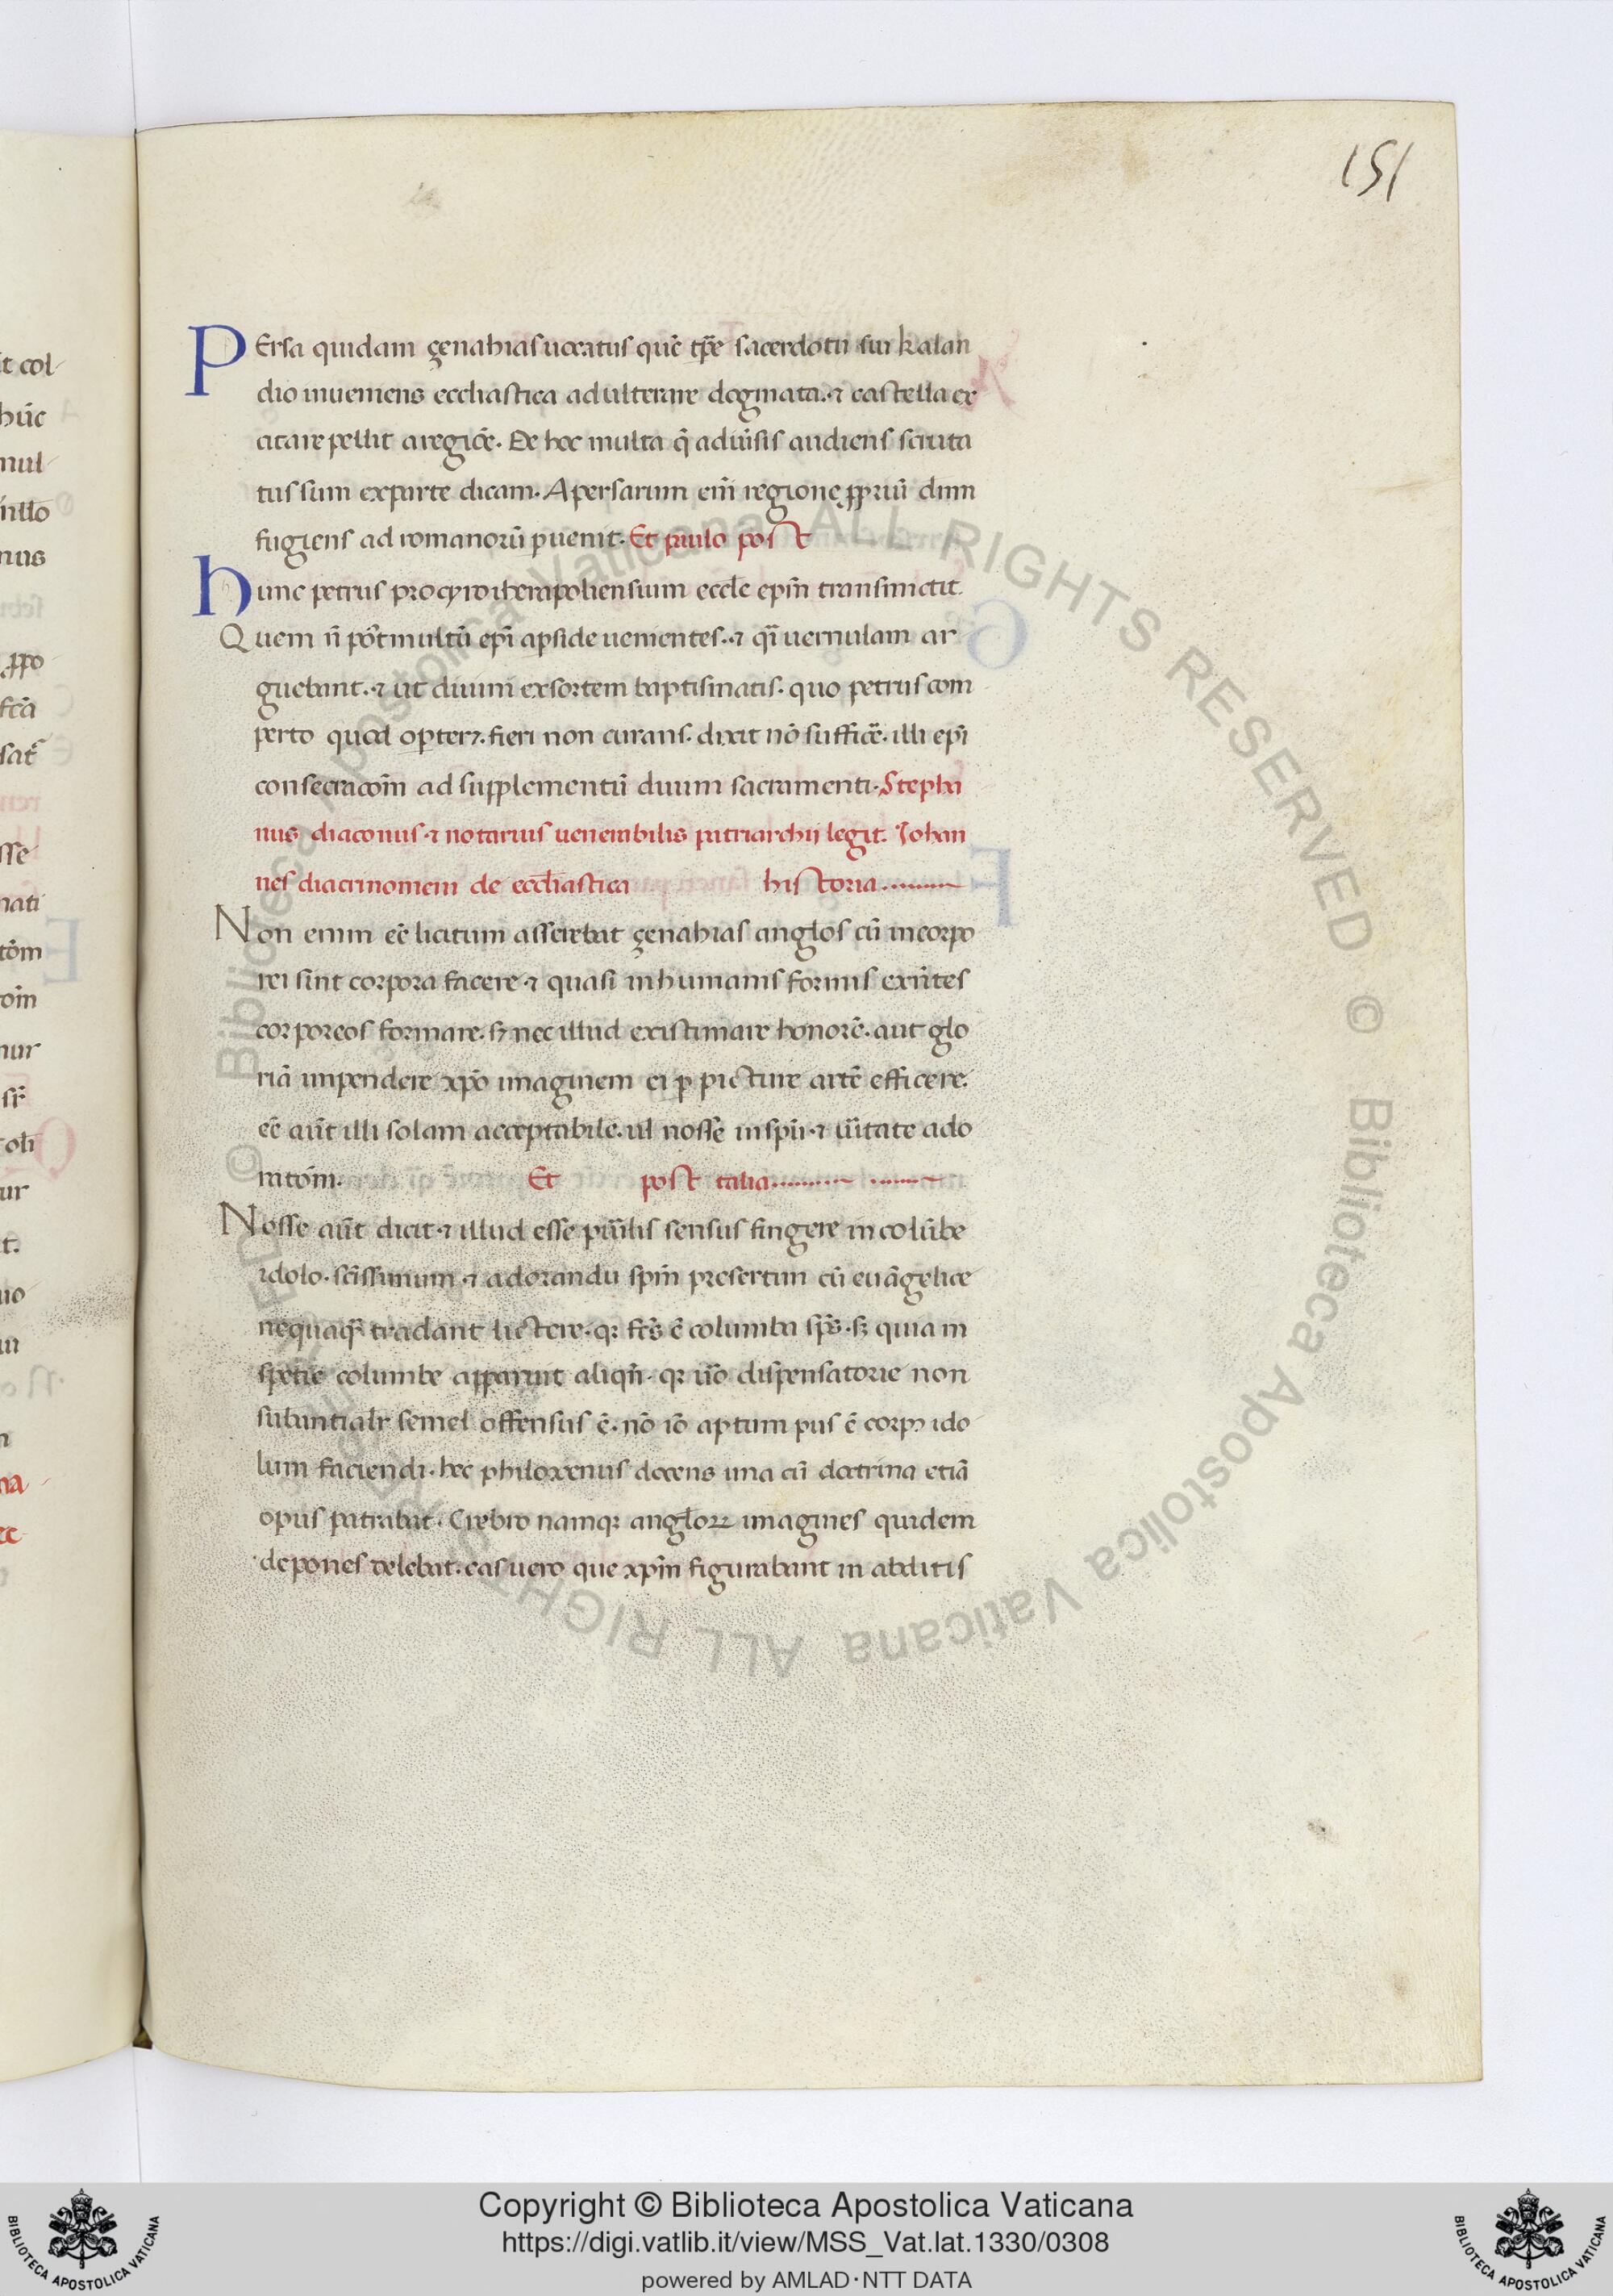 151
PErsa quidam çenahias uocatus quē tp̄e sacerdotii sui kalan
dio inueniens eccliastica adulterare dogmata. ⁊ castella ex
citare pellit a regiōe. De hoc multa q̄ aduersis audiens scruta
tus sum ex parte dicam. A persarum em̄ regione ꝓpriū dnm
fugiens ad romanorū ꝑuenit. Et paulo post
hunc petrus pro cyro iherapoliensium eccl̄e ep̄m transmictit.
Quem n̄ pꝰt multū ep̄i apside uenientes. ⁊ q̄i uernulam ar
guebant. ⁊ ut diuini exsortem baptismatis. quo petrus com
perto quod opterꝫ. fieri non curans. dixit nō sufficē. illi ep̄i
consecracōm ad supplementū diuini sacramenti. Stepha
nus diaconus ⁊ notarius uenerabilis patriarchii legit. Johan
nes diacrinomeni de eccl̄iastica historia
Non enim eē licitum asserebat çenahias anglos cū incorpo
rei sint corpora facere ⁊ quasi in humanis formis exn̄tes
corporeos formare. sꝫ nec illud existimare honorē. aut glo
riā inpendere xp̄o imaginem ei ꝑ picture artē efficere.
eē aūt illi solam acceptabile. ul nosse in spū. ⁊ ūitate ado
ratōm. Et post talia
Nosse aūt dicit ⁊ illud esse puīlis sensus fingere in colūbe
idolo. sc̄issimum ⁊ adorandū sp̄m presertim cū euāgelice
nequaqꝫ tradant lictere. qꝫ fc̄s ē columba sp̄s. sꝫ quia in
spetie columbe apparuit aliqn̄. qꝫ ūo dispensatorie non
subantialr̄ semel offensus ē. nō iō aptum pus ē corpꝰ ido
lum faciendi. hec philoxenus docens una cū doctrina etiā
opus patrabat. Crebro namqꝫ angloꝝ imagines quidem
deponēs delebat. eas uero que xp̄m figurabant in abditis
Copyright © Biblioteca Apostolica Vaticana
https://digi.vatlib.it/view/MSS_Vat.lat.1330/0308
powered by AMLAD·NTT DATA